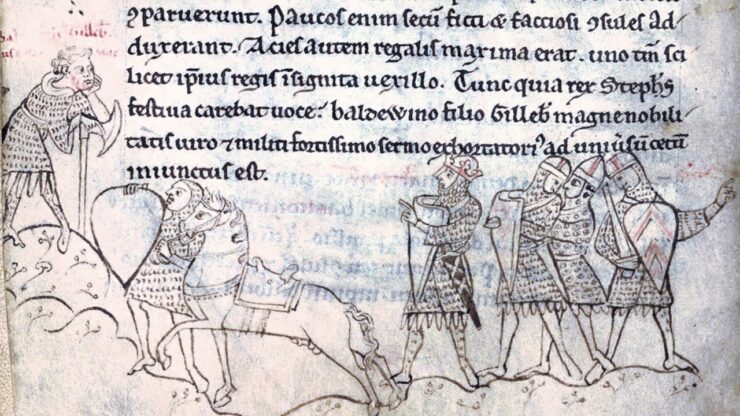 ꝯparuerunt. Paucos enim secū ficti & factiosi ꝯsules ad
duxerant. Acies autem regalis maxima erat. uno tm̄ sci
licet ip̄ius regis īsignita uexillo. Tunc quia rex Stephs
festiua carebat uoce: baldewino filio Gilleb̄ magne nobili
tatis uiro & militi fortissimo sermo exhortatoriꝰ ad uniūsū cetū
iniunctus est.